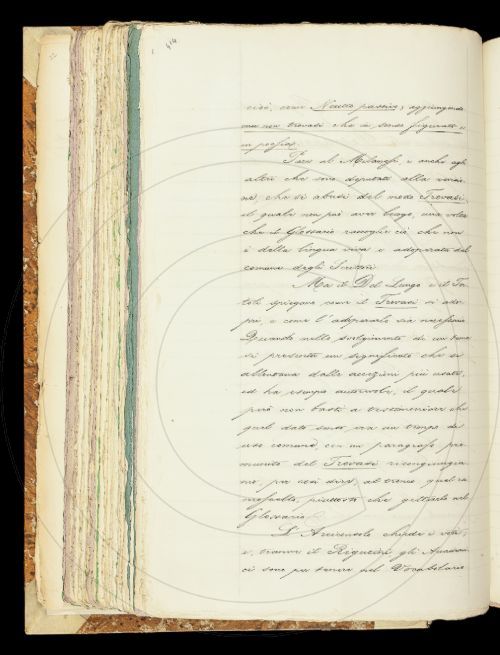 414
cioè, come Neutro passivo; aggiungendo
ma non trovasi che in senso figurato o
in poesia.
Pare al Milanesi, e anche agli
altri che sono deputati alla revisio
ne, che si abusi del modo Trovasi,
il quale non può aver luogo, una volta
che il Glossario raccoglie ciò che non
è della lingua viva e adoperata dal
comune degli Scrittori.
Ma il Del Lungo e il Tor
toli spiegano come il Trovasi si ado
pri, e come l'adoperarlo sia necessario.
Quando nello svolgimento di un tema
si presenta un significato che si
allontana dalle accezioni più usate,
ed ha esempio autorevole, il quale
però non basti a testimoniare che
quel dato senso era un tempo di
uso comune, con un paragrafo pre
munito del Trovasi ricongiunga
no, per così dire, al tronco quel ra
moscello, piuttosto che gettarlo nel
Glossario.
L'Arciconsolo chiede i voti,
e, tranne il Rigutini, gli Accademi
ci sono per tenere nel Vocabolario